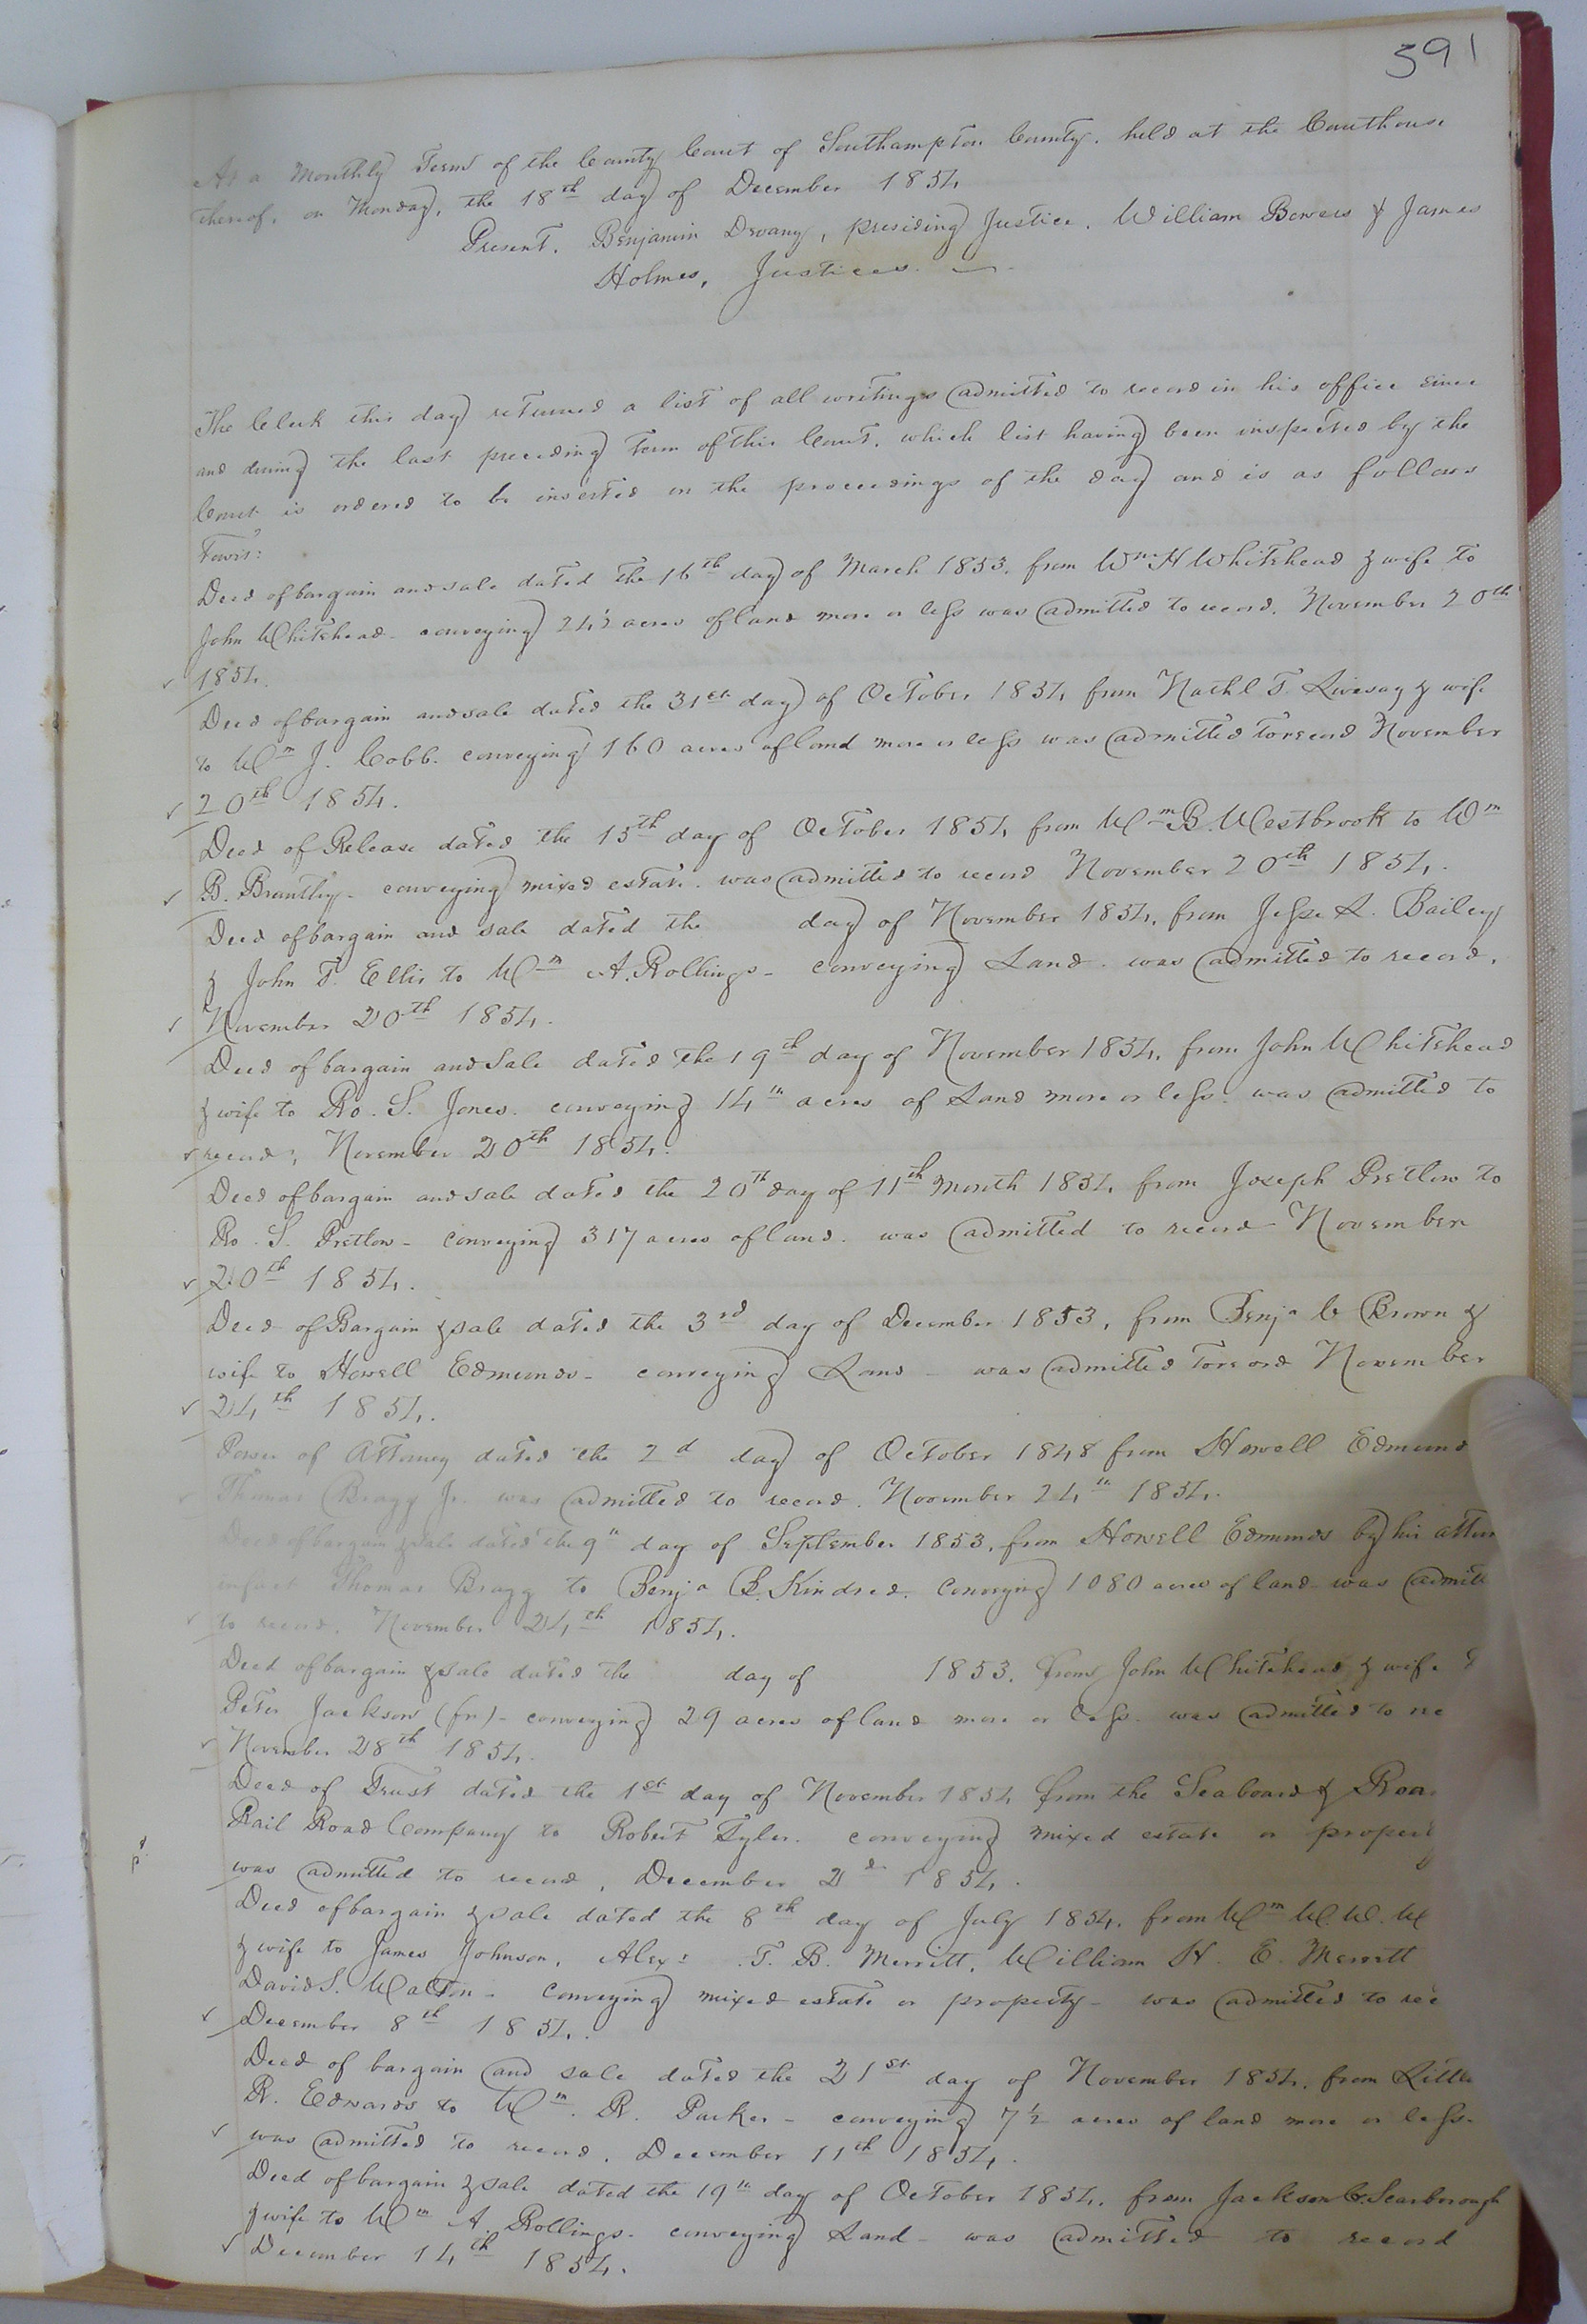 391
At a Monthly Term of the County Court of Southampton County, held at the Courthouse
thereof, on Monday, the 18th day of December 1854
Present, Benjamin Devany, presiding Justice, William Bowers & James
Holmes, Justices.
The Clerk this day returned a list of all writings admitted to record in his office since
and during the last preceding Term of this Court, which list having been inspected by the
Court is ordered to be inserted in the proceedings of the day and is as follows
Towit:
Deed of bargain and sale dated the 16th day of March 1853, from Wm H Whitehead & wife to
John Whitehead - conveying acres of land more or less was admitted to record, November 20th
1854.
Deed of bargain and sale dated the 31st day of October 1854 from Nathl T. Livesay & wife
to Wm J. Cobb. conveying 160 acres of land more or less was admitted to record November
20th 1854.
Deed of Release dated the 15th day of October 1854 from Wm B. Westbrook to Wm
B. Brantley - conveying mixed estate was admitted to record November 20th 1854.
Deed of bargain and sale dated the day of November 1854, from Jesse L. Bailey
& John T. Ellis to Wm A. Rollings - conveying Land was admitted to record,
November 20th 1854.
Deed of bargain and Sale dated the 19th day of November 1854, from John Whitehead
& wife to Ro. S. Jones. conveying 14 acres of Land more or less was admitted to
record, November 20th 1854.
Deed of bargain and sale dated the 20th day of 11th Month 1854 from Joseph Pretlow to
Ro. S. Pretlow - conveying 317 acres of land. was admitted to record November
20th 1854.
Deed of Bargain & sale dated the 3rd day of December 1853, from Benja C Brown &
wife to Howell Edmunds - conveying Land - was admitted to record November
24th 1854.
Power of Attorney dated the 2d day of October 1848 from Howell Edmund
Thomas Bragg Jr. was admitted to record. November 24th 1854.
Deed of bargain & sale dated the 9th day of September 1853, from Howell Edmunds by his attor
infact Thomas Bragg to Benja B. Kindred. Conveying 1080 acres of land was admitt
to record, November 24th 1854.
Deed of bargain & sale dated the day of 1853. from John Whitehead & wife
Peter Jackson (fn) - conveying 29 acres of land more or less was admitted to re
November 28th 1854.
Deed of Trust dated the 1st day of November 1854 from the Seaboard & Roa
Rail Road Company to Robert Tyler. conveying mixed estate or proper
was admitted to record, December 2d 1854.
Deed of bargain & sale dated the 8th day of July 1854. from Wm W. W. W
& wife to James Johnson, Alexr T. B. Merritt, William H. E. Merritt
David S. Walton - Conveying mixed estate or property - was admitted to rec
December 8th 1854.
Deed of bargain and sale dated the 21st day of November 1854, from Little
R. Edwards to Wm. R. Parker - conveying 7½ acres of land more or less.
was admitted to record, December 11th 1854.
Deed of bargain & sale dated the 19th day of October 1854. from Jackson C. Scarborough
& wife to Wm A. Rollings. conveying Land - was admitted to record
December 14th 1854.